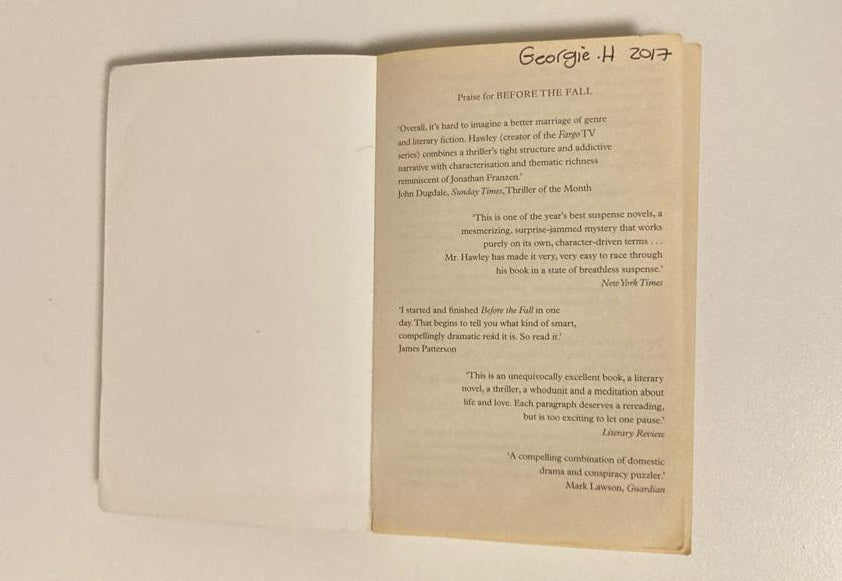 Georgie.H 2017
Praise for BEFORE THE FALL
'Overall, it's hard to imagine a better marriage of genre
and literary fiction. Hawley (creator of the Fargo TV
series) combines a thriller's tight structure and addictive
narrative with characterisation and thematic richness
reminiscent of Jonathan Franzen.'
John Dugdale, Sunday Times, Thriller of the Month
'This is one of the year's best suspense novels, a
mesmerizing, surprise-jammed mystery that works
purely on its own, character-driven terms . . .
Mr. Hawley has made it very, very easy to race through
his book in a state of breathless suspense.'
New York Times
'I started and finished Before the Fall in one
day. That begins to tell you what kind of smart,
compellingly dramatic read it is. So read it.'
James Patterson
'This is an unequivocally excellent book, a literary
novel, a thriller, a whodunit and a meditation about
life and love. Each paragraph deserves a rereading,
but is too exciting to let one pause.'
Literary Review
'A compelling combination of domestic
drama and conspiracy puzzler.'
Mark Lawson, Guardian